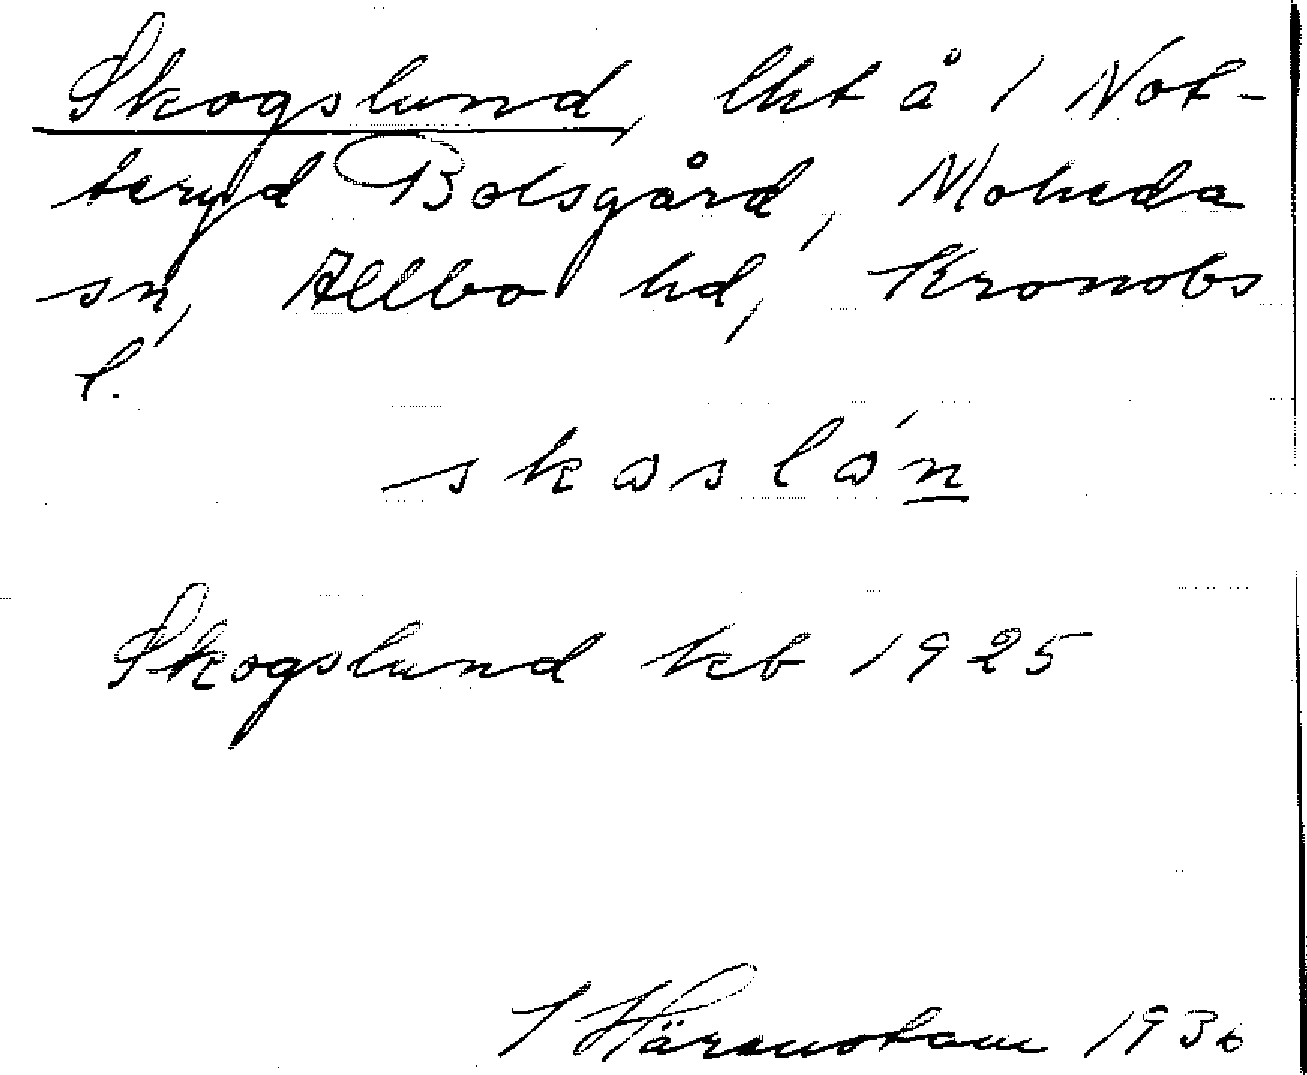 Skogslund, lht å 1 Not-
teryd Bolsgård, Moheda
sn, Allbo hd, Kronobs
l.
skɷslɷ́n
Skogslund kb 1925
1936